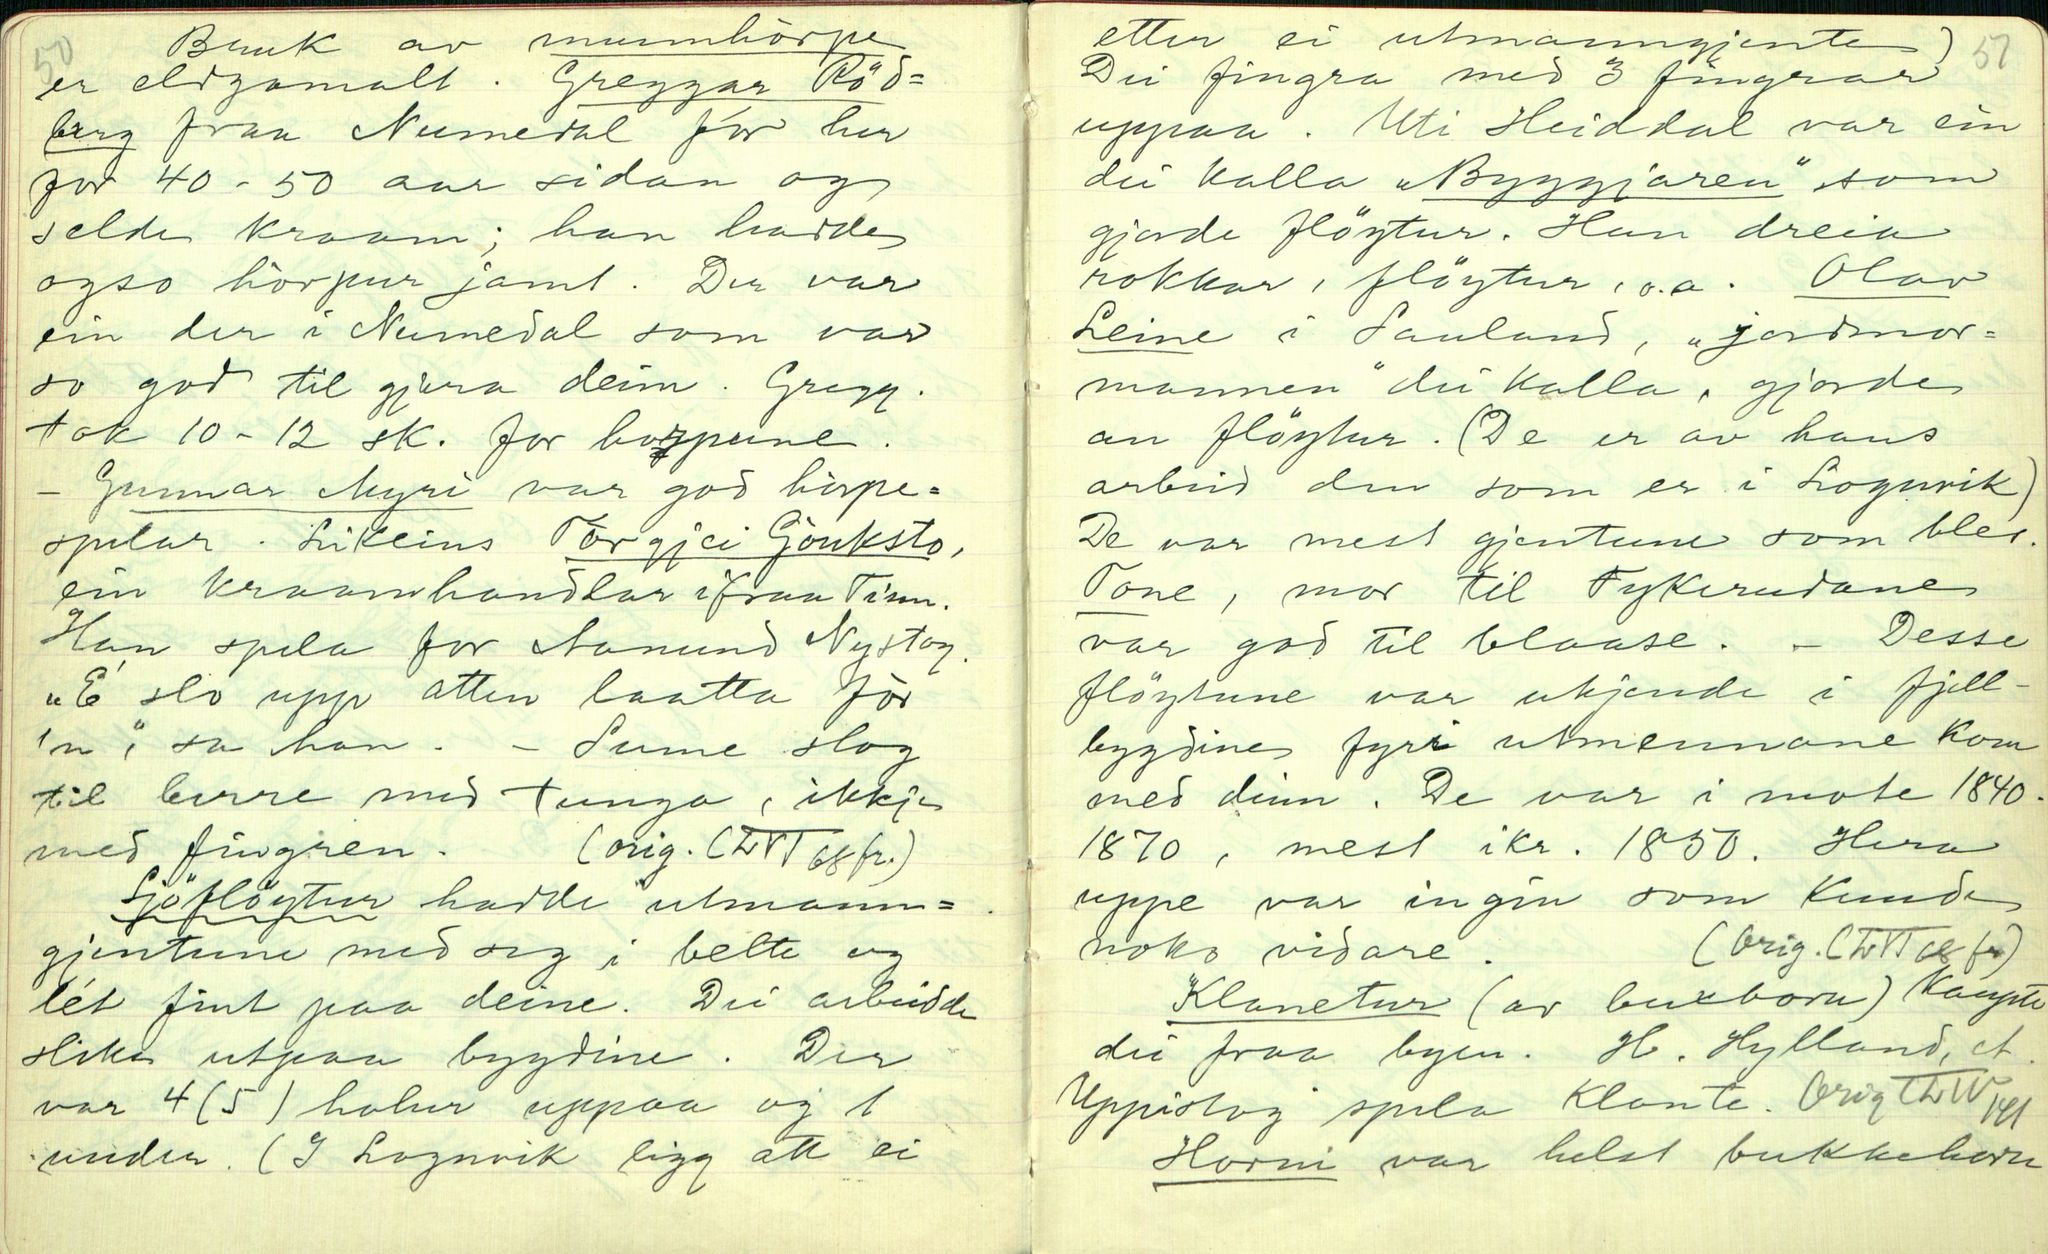 50
Bruk av munnhörpe
er eldgamalt. Greggar Röd=
berg fraa Numedal fór her
for 40 - 50 aar sidan og
selde kraam; han hadde
ogso hörpur jamt. Der var
ein der i Numedal som var
so god til gjera deim. Gregg.
tok 10 - 12 sk. for horpune.
- Gunnar Myri var god hörpe=
spelar. Likeins Torgjei Gjöuksto,
ein kraamhandlar ifraa Tinn.
Han spela for Aanund Nystog.
"E slo upp atten laatta för
'n", sa han. - Sume slog
til berre med tunga, ikkje
med fingren. (orig. CLVI 68 fr.)
Sjöflöytur hadde utmann=
gjentune med seg i belte og
lét fint paa deine. Dei arbeidde
slike utpaa bygdine. Der
var 4 (5) holur uppaa og 1
under. (I Lognvik ligg att ei
51
etter ei utmanngjente)
Dei fingra med 3 fingrar
uppaa. Uti Heiddal var ein
dei kalla "Byggjaren" som
gjorde flöytur. Han dreia
rokkar, flöytur, o.a. Olav
Leine i Sauland, "jordmor=
mannen" dei kalla, gjorde
au flöytur. (De er av hans
arbeid den som er i Lognvik)
De var mest gjentune som bles.
Tone, mor til Tykerudane
var god til blaase. - Desse
flöytune var ukjende i fjell-
bygdine fyri utmennane kom
med deim. De var i mote 1840-
1870, mest ikr. 1850. Hera
uppe var ingin som kunde
noko vidare. (Orig. CLVI 68 fr)
Klanetur (av buxborn) kaupte
dei fraa byen. H. Hylland, et.
Uppistog spela klante. Orig CLIV 141
Horni var helst bukkehorn